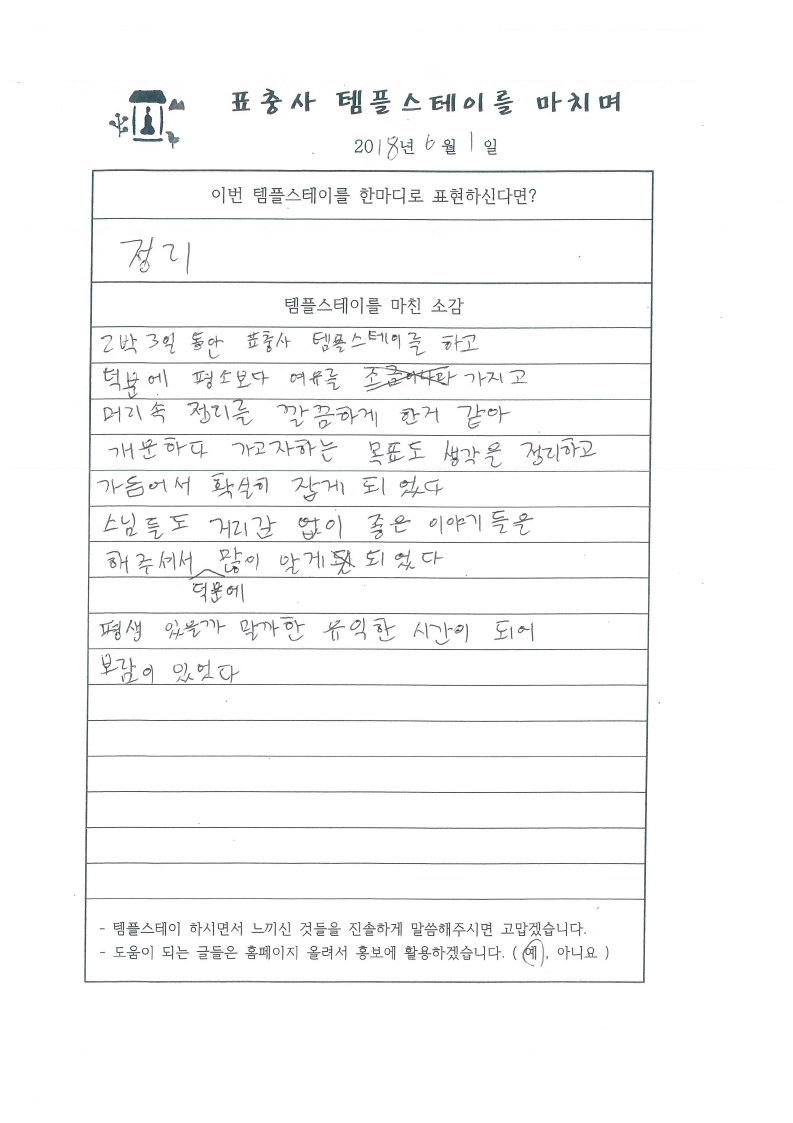 표충사 템플스테이를 마치며
2018년 6월 1일
이번 템플스테이를 한마디로 표현하신다면?
정리
템플스테이를 마친 소감
2박 3일 동안 표충사 템플스테이를 하고
덕분에 평소보다 여유를 가지고
머리속 정리를 깔끔하게 한거 같아
개운하다 가고자하는 목표도 생각을 정리하고
가듬어서 확실히 잡게 되었다
스님들도 거리감 없이 좋은 이야기들은
해주셔서 많이 알게 되었다
덕분에
평생 있을까 말까한 유익한 시간이 되어
보람이 있었다
- 템플스테이 하시면서 느끼신 것들을 진솔하게 말씀해주시면 고맙겠습니다.
- 도움이 되는 글들은 홈페이지 올려서 홍보에 활용하겠습니다. ( 예, 아니요 )